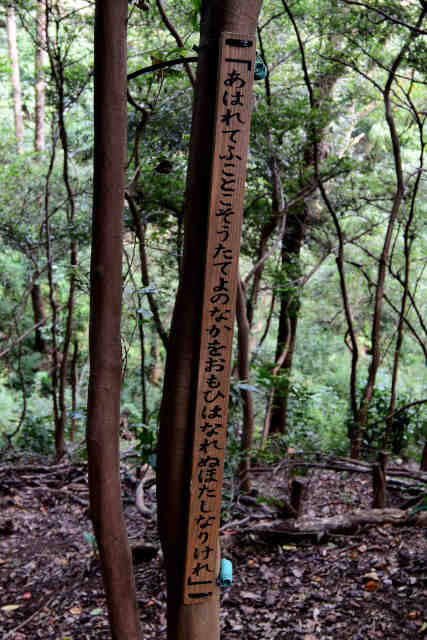 「あはれてふことこそうたてよのなかをおもひはなれぬほだしなりけれ」